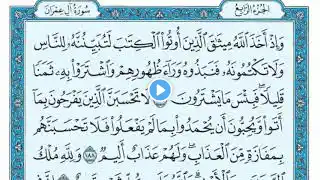 الجزء الرابع
سورة آل عمران
وَإِذْ أَخَذَ ٱللَّهُ مِيثَٰقَ ٱلَّذِينَ أُوتُوا۟ ٱلْكِتَٰبَ لَتُبَيِّنُنَّهُۥ لِلنَّاسِ
وَلَا تَكْتُمُونَهُۥ فَنَبَذُوهُ وَرَآءَ ظُهُورِهِمْ وَٱشْتَرَوْا۟ بِهِۦ ثَمَنًا
قَلِيلًا ۖ فَبِئْسَ مَا يَشْتَرُونَ لَا تَحْسَبَنَّ ٱلَّذِينَ يَفْرَحُونَ بِمَآ
أَتَوا۟ وَّيُحِبُّونَ أَن يُحْمَدُوا۟ بِمَا لَمْ يَفْعَلُوا۟ فَلَا تَحْسَبَنَّهُم
بِمَفَازَةٍ مِّنَ ٱلْعَذَابِ ۖ وَلَهُمْ عَذَابٌ أَلِيمٌ ١٨٨ وَلِلَّهِ مُلْكُ